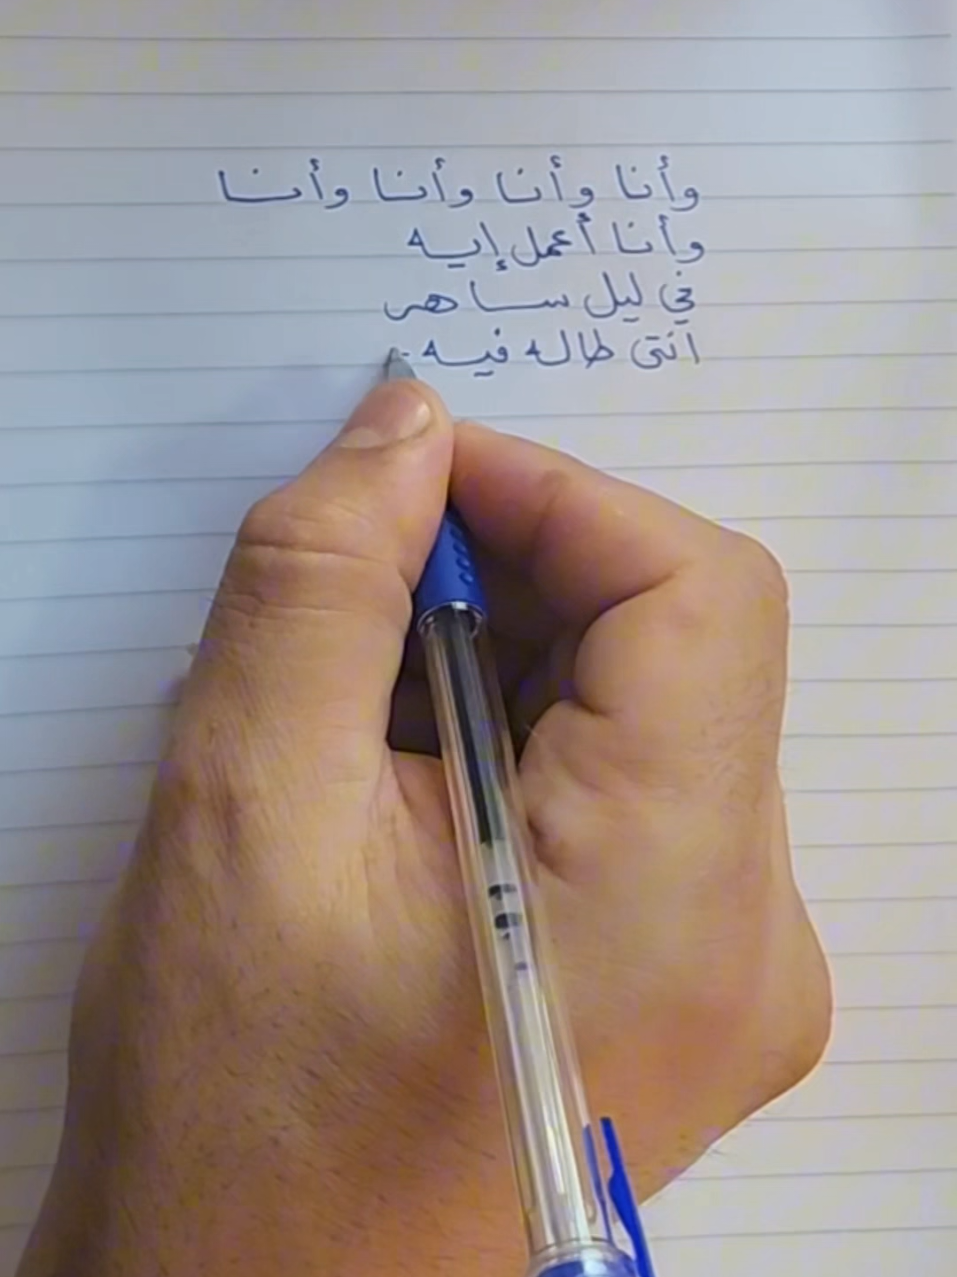 وأنا وأنا وأنا وأنا
وأنا أعمل إيه
في ليل ساهر
انتى طاله فيه